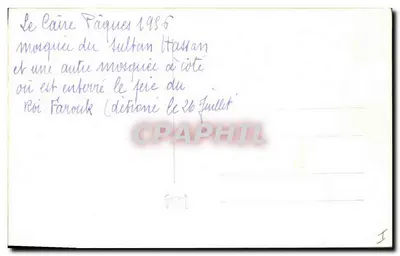 Le Caire Pâques 1956
mosquée du sultan Hassan
et une autre mosquée à côté
où est enterré le père du
Roi Farouk (détroné le 26 Juillet
CPARAMA.COM
I